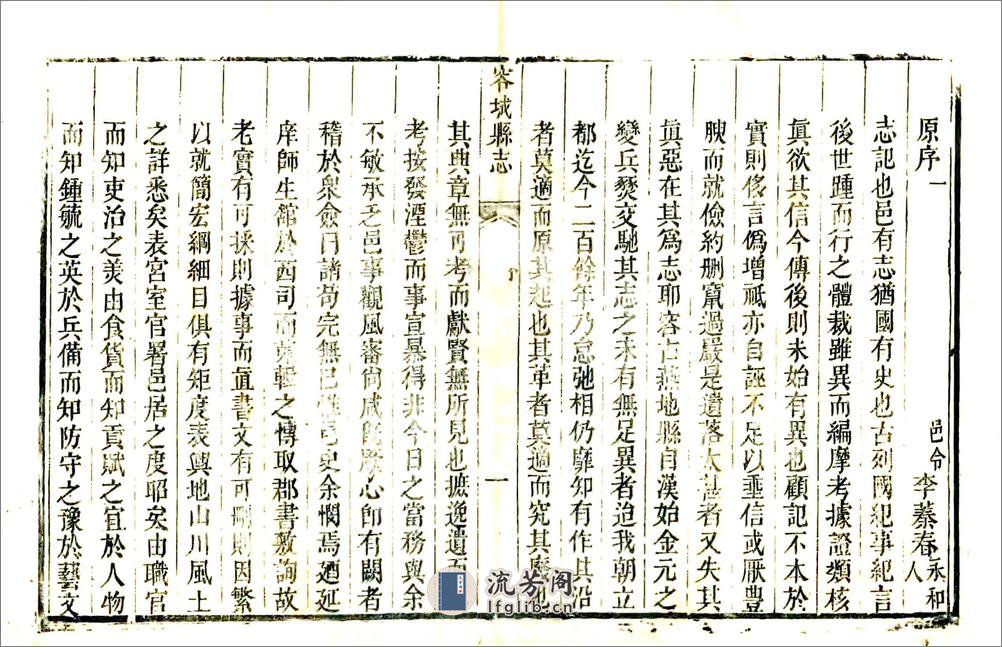 原序一
邑令李蓁春永和人
志記也邑有志猶國有史也古列國紀事紀言
後世踵而行之體裁雖異而編摩考據證類核
眞欲其信今傳後則未始有異也顧記不本於
實則侈言僞增祗亦自誣不足以垂信或厭豊
腴而就儉約刪竄過嚴是遺落太甚者又失其
眞惡在其爲志耶容古燕地縣自漢始金元之
變兵燹交馳其志之未有無足異者迨我朝立
都迄今二百餘年乃怠弛相仍靡知有作其沿
者莫適而原其起也其革者莫適而究其廢也
容城縣志
序
一
其典章無可考而獻賢無所見也摭逸遺
考按發湮鬱而事宣暴得非今日之當務與余
不敏承乏邑事觀風審尚咸旣厥心卽有闕者
稽於衆僉曰諸苟完無已惟邑史余憫焉廼延
庠師生舘於西司而蒐輯之慱取郡書敷詢故
老實有可採則據事而直書文有可刪則因繁
以就簡宏綱細目俱有矩度表輿地山川風土
之詳悉矣表宮室官署邑居之度昭矣由職官
而知吏治之美由食貨而知貢賦之宜於人物
而知鍾毓之英於兵備而知防守之豫於藝文
流芳阁
lfglib.cn